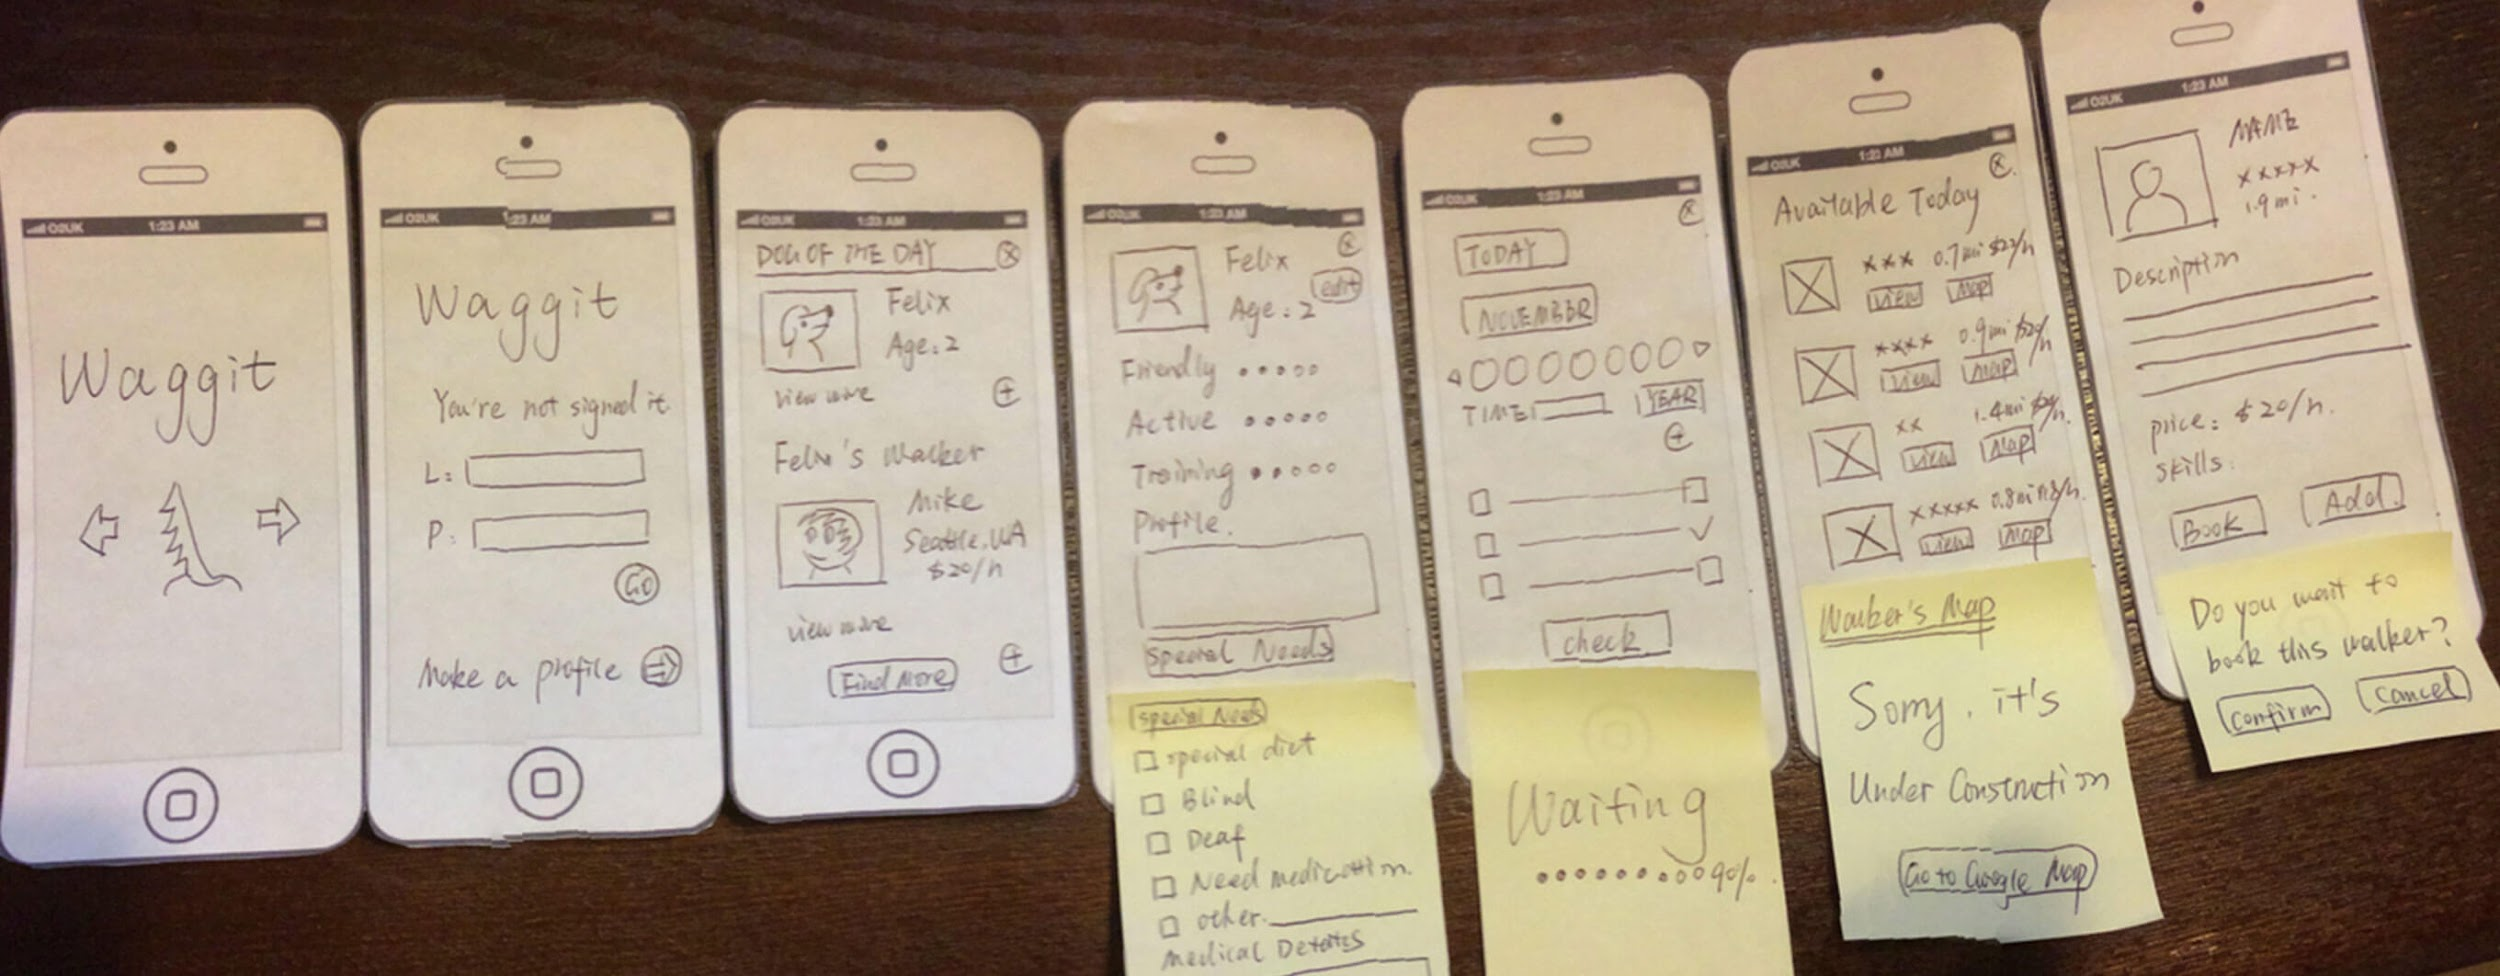 O2UK 1:23 AM
Waggit
O2UK 1:23 AM
Waggit
You're not signed it
L:
P:
GO
Make a profile
O2UK 1:23 AM
DOG OF THE DAY
Felix
Age: 2
view more
Felix's Walker
Mike
Seattle, WA
$20/h
view more
Find More
O2UK 1:23 AM
Felix
edit
Age: 2
Friendly
Active
Training
Profile.
Special Needs
special Needs
special diet
Blind
Deaf
Need medication.
other.
Medical Details
O2UK 1:23 AM
TODAY
NOVEMBER
TIME: YEAR
check
Waiting
90%.
O2UK 1:23 AM
Available Today
xxx 0.7mi $22/h
view Map
xxxx 0.9mi $20/h
view Map
xx 1.4mi
view Map
xxxxx 0.8mi
view Map
Walker's Map
Sorry, it's
Under Construction
Go to Google Map
O2UK 1:23 AM
NAME
xxxxx
1.9mi.
Description
price: $20/h.
skills:
Book Add.
Do you want to
book this walker?
Confirm Cancel